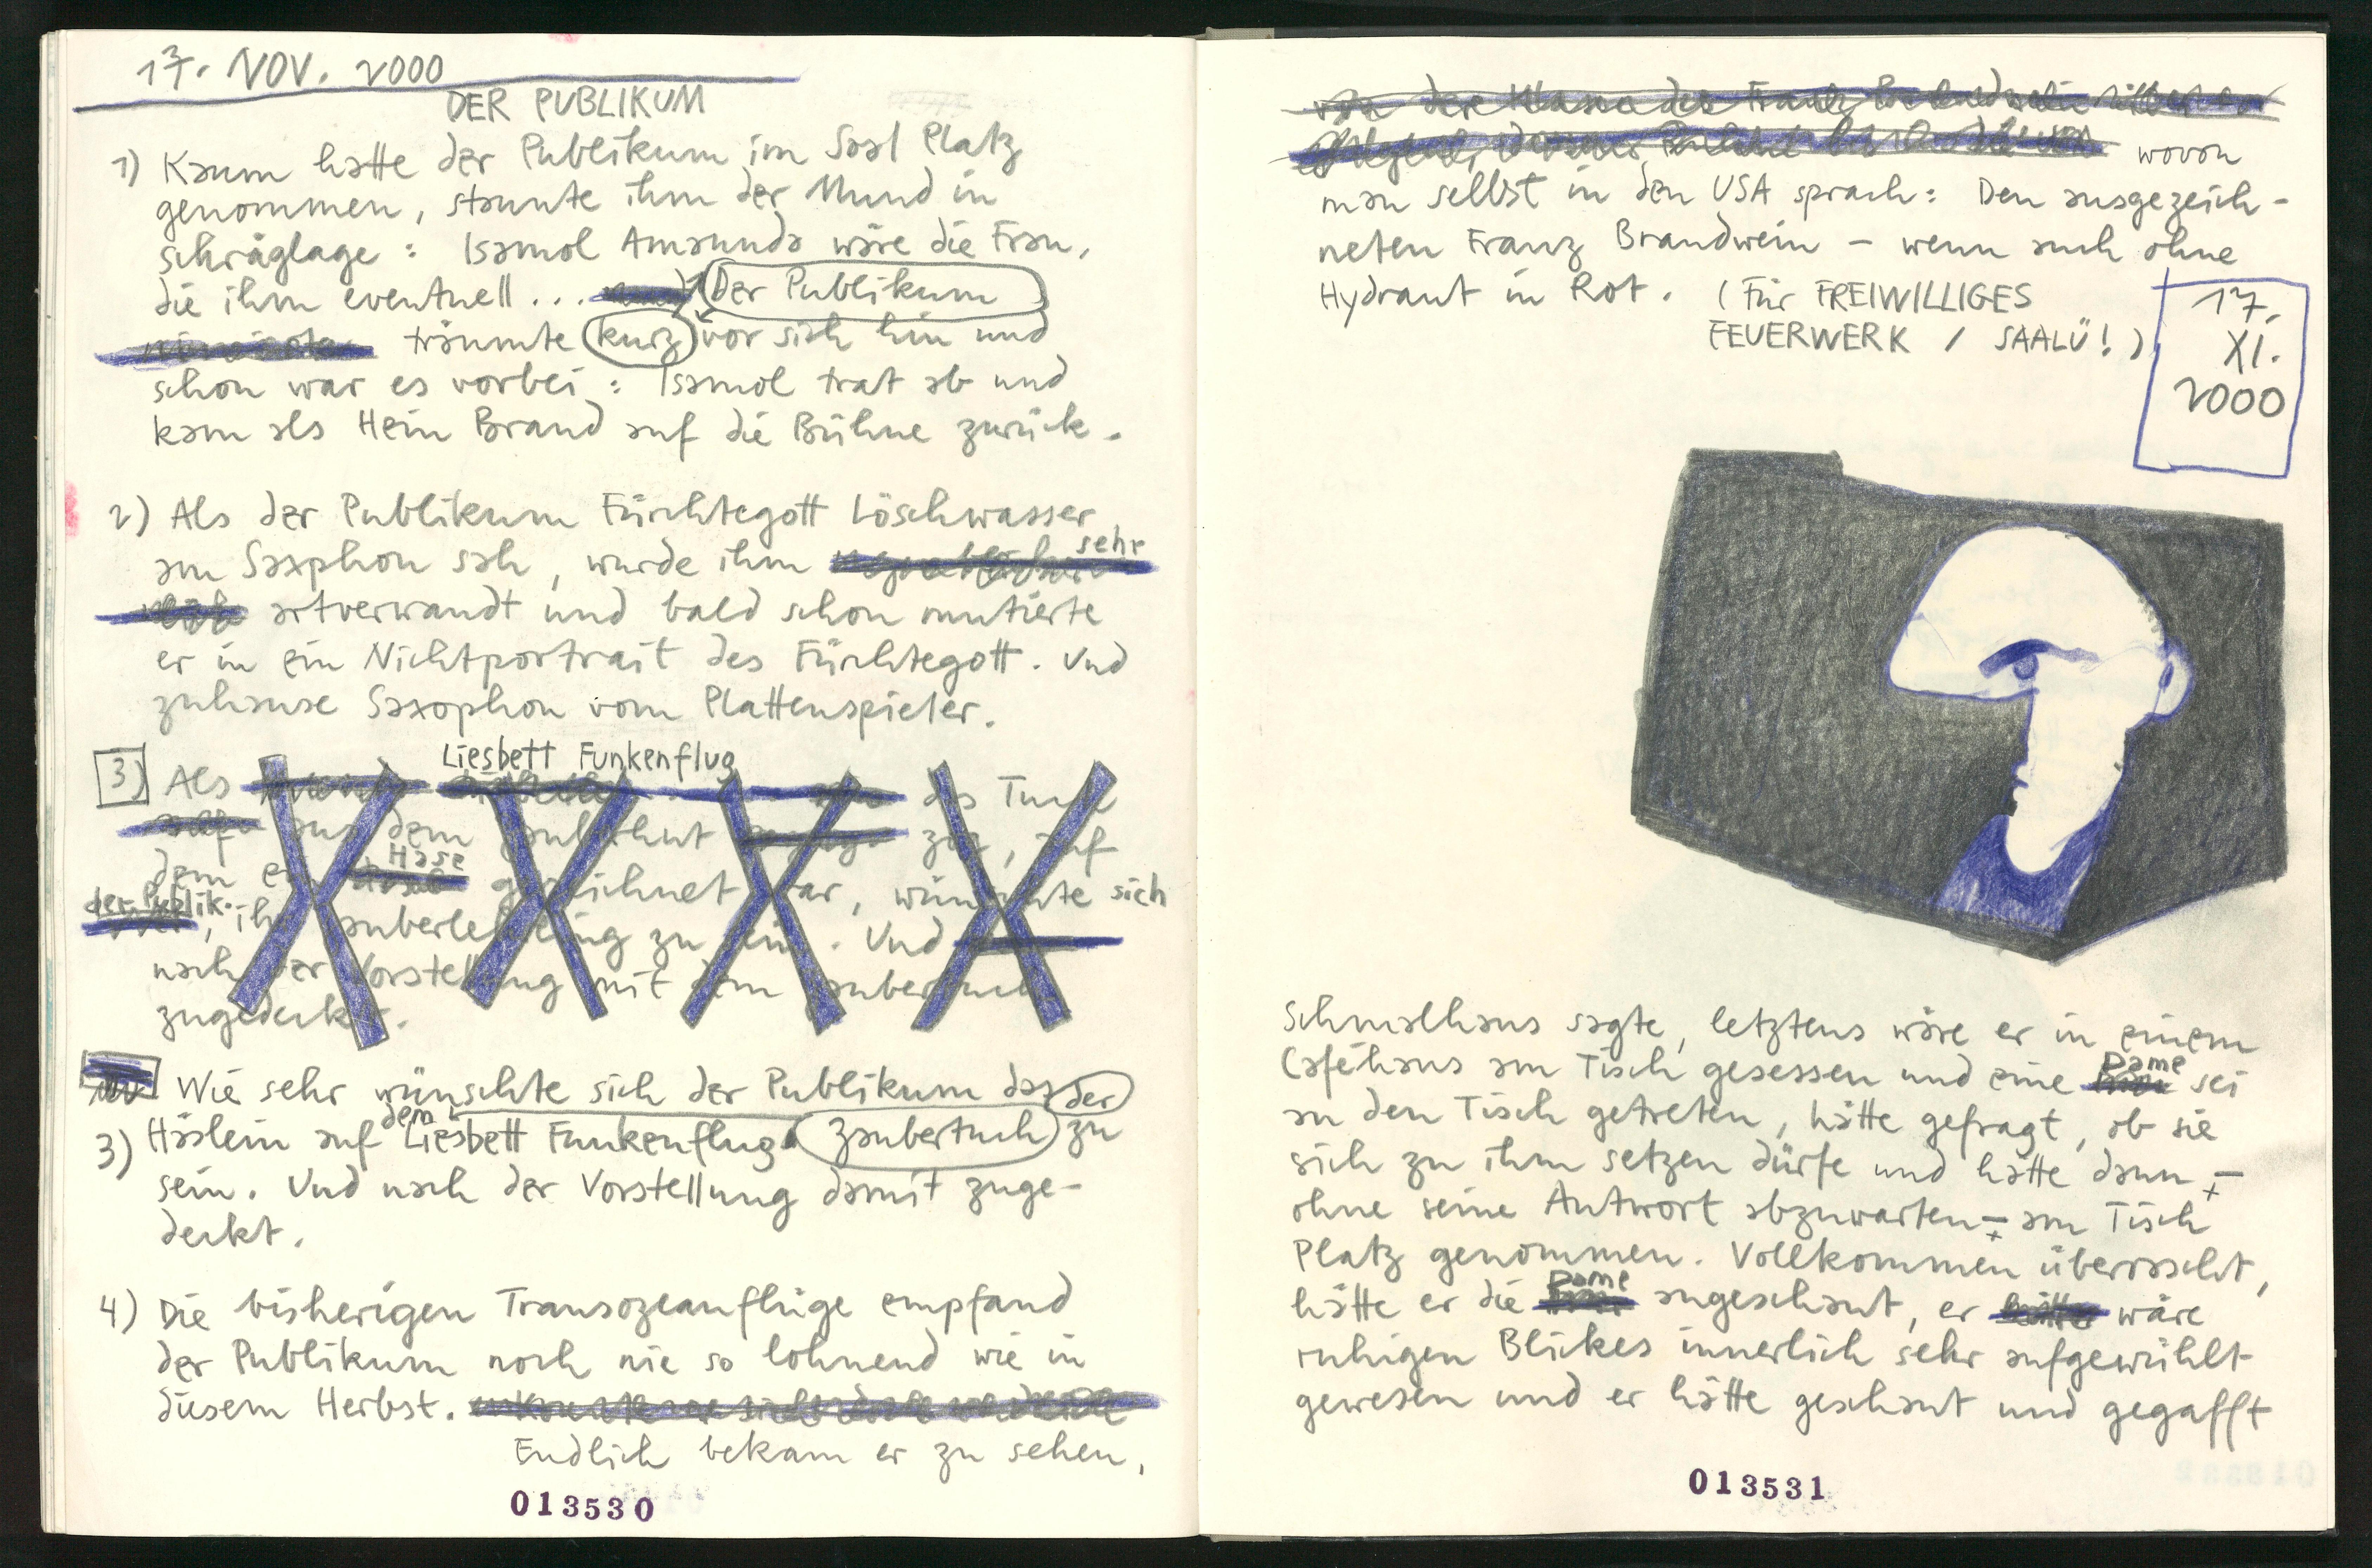 17. NOV. 2000
DER PUBLIKUM
1) Kaum hatte der Publikum im Saal Platz
genommen, staunte ihm der Mund in
schräglage: Isamol Amaunda wäre die Frau,
die ihm eventuell... Der Publikum
träumte kurz vor sich hin und
schon war es vorbei: Isamol trat ab und
kam als Hein Brand auf die Bühne zurück.
2) Als der Publikum Fürchtegott Löschwasser
am Saxphon sah, wurde ihm sehr
artverwandt und bald schon mutierte
er in ein Nichtportrait des Fürchtegott. Und
zuhause Saxophon vom Plattenspieler.
Liesbett Funkenflug
3) Als das Tuch
aus dem Zauberhut zog, auf
dem ein Hase gezeichnet war, wünschte sich
der Publik., ihr Zauberlehrling zu sein. Und
nach der Vorstellung mit dem Zaubertuch
zugedeckt.
Wie sehr wünschte sich der Publikum das der
3) Häslein auf dem Liesbett Funkenflug Zaubertuch zu
sein. Und nach der Vorstellung damit zuge-
deckt.
4) Die bisherigen Transozeanflüge empfand
der Publikum noch nie so lohnend wie in
diesem Herbst.
Endlich bekam er zu sehen,
013530
wovon
man selbst in den USA sprach: Den ausgezeich-
neten Franz Brandwein – wenn auch ohne
Hydrant in Rot. (Für FREIWILLIGES
FEUERWERK / SAALÜ!)
17.
XI.
2000
Schmalhans sagte, letztens wäre er in einem
Caféhaus am Tisch gesessen und eine Dame sei
an den Tisch getreten, hätte gefragt, ob sie
sich zu ihm setzen dürfe und hätte dann –
ohne seine Antwort abzuwarten – am Tisch
Platz genommen. Vollkommen überrascht,
hätte er die Dame angeschaut, er wäre
ruhigen Blickes innerlich sehr aufgewühlt
gewesen und er hätte geschaut und gegafft
013531